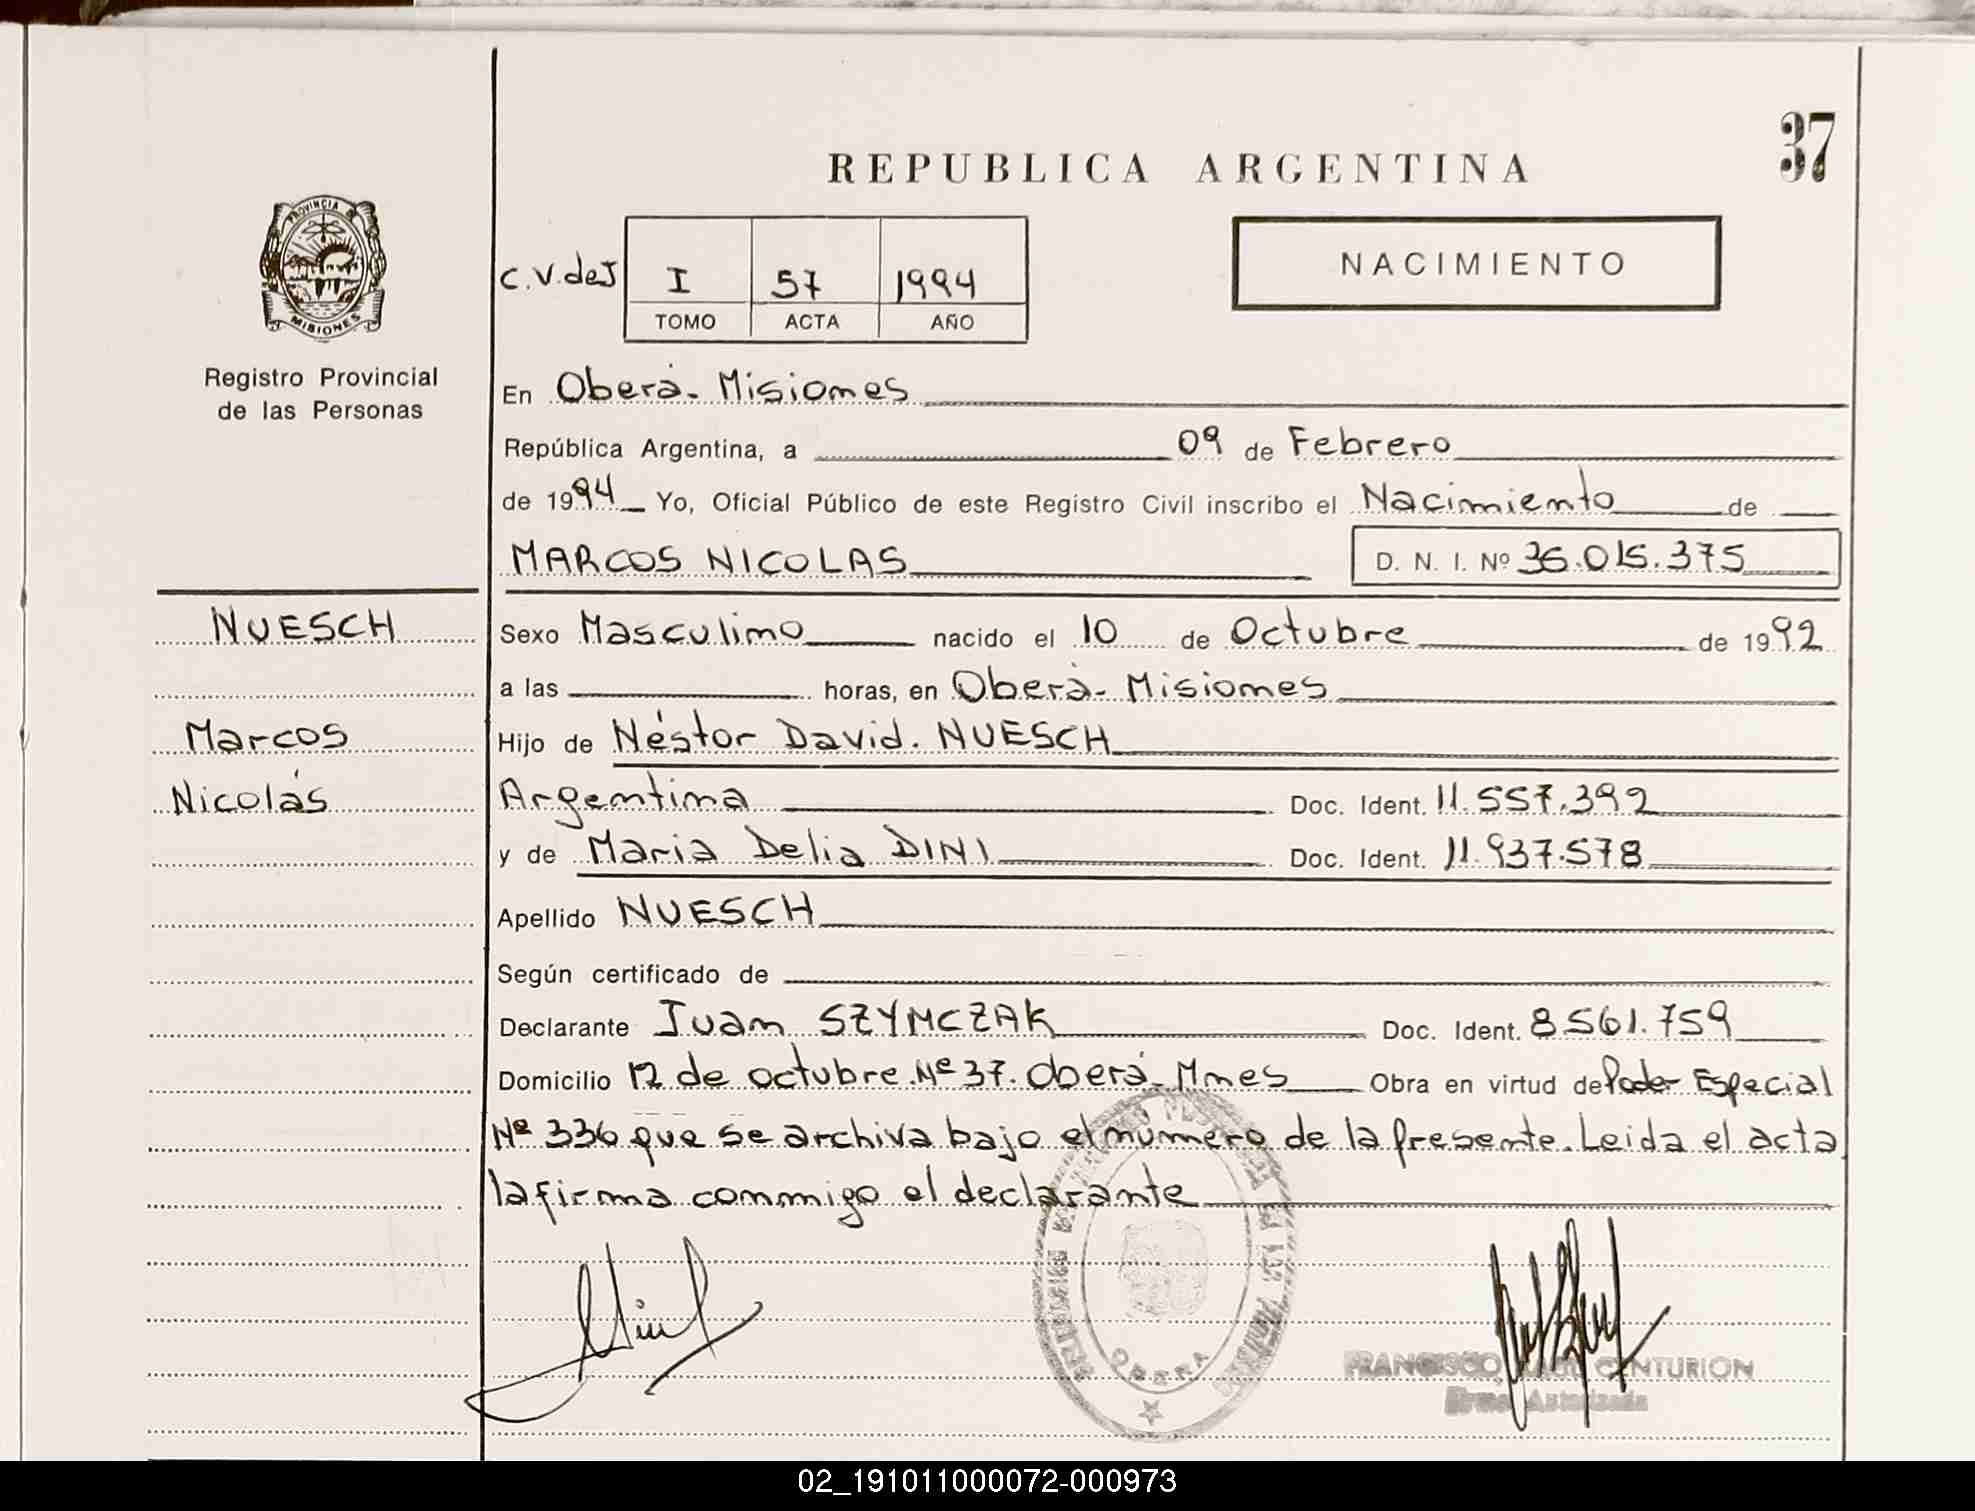 37
REPUBLICA ARGENTINA
PROVINCIA DE
MISIONES
Registro Provincial
de las Personas
C.V.deJ I 57 1994
TOMO ACTA AÑO
NACIMIENTO
En Oberá- Misiones
República Argentina, a 09 de Febrero
de 1994 Yo, Oficial Público de este Registro Civil inscribo el Nacimiento de
MARCOS NICOLAS D. N. I. Nº 36.015.375
NUESCH
Marcos
Nicolás
Sexo Masculino nacido el 10 de Octubre de 1992
a las horas, en Oberá- Misiones
Hijo de Néstor David. NUESCH
Argentina Doc. Ident. 11.557.392
y de Maria Delia DINI Doc. Ident. 11.937.578
Apellido NUESCH
Según certificado de
Declarante Juan SZYMCZAK Doc. Ident. 8.561.759
Domicilio 12 de octubre Nº 37. Oberá- Mnes Obra en virtud de Poder Especial
Nº 336 que se archiva bajo el numero de la presente. Leida el acta
la firma conmigo el declarante
OBERA
FRANCISCO CENTURION
Firma Autorizada
02_191011000072-000973